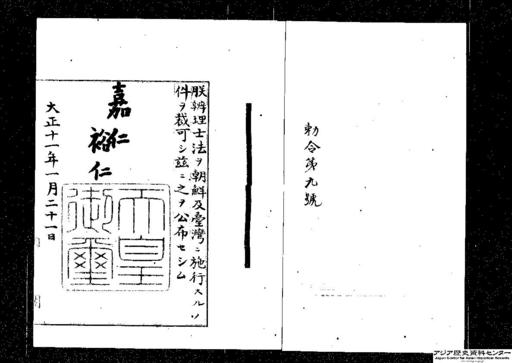 勅令第九號
朕辨理士法ヲ朝鮮及臺灣ニ施行スルノ
件ヲ裁可シ茲ニ之ヲ公布セシム
嘉仁
裕仁
天皇
御璽
大正十一年一月二十一日
アジア歴史資料センター
Japan Center for Asian Historical Records